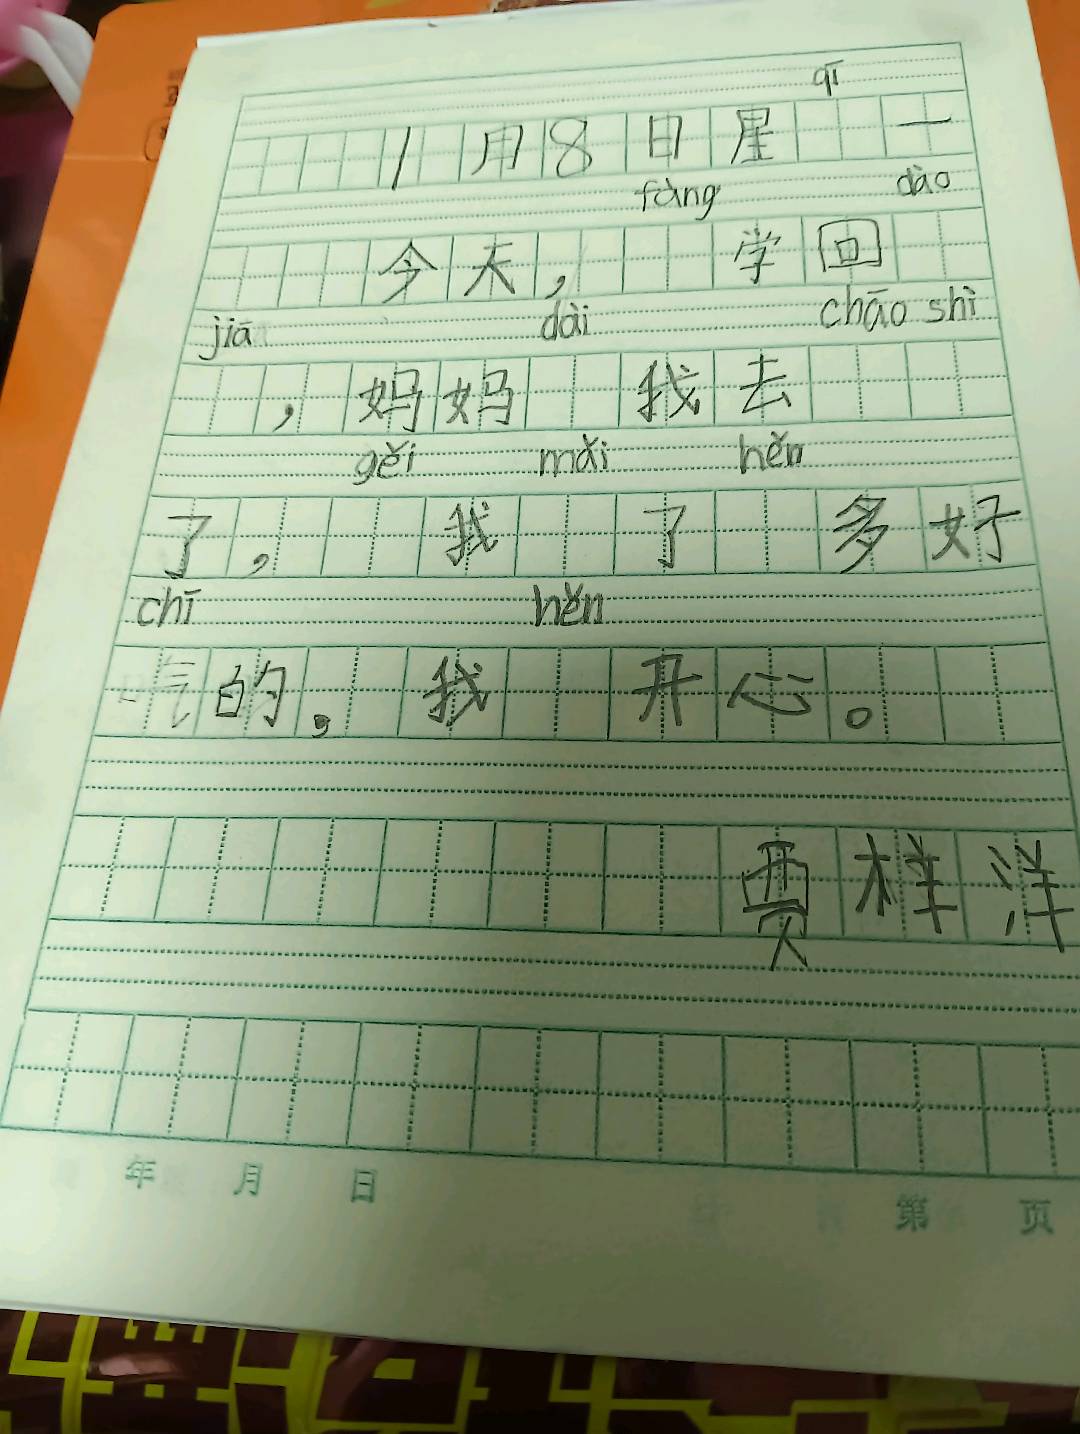 qī
1月8日星 一
fàng dào
今天, 学回
jiā dài chāo shì
,妈妈 我去
gěi mǎi hěn
了, 我 了 多好
chī hěn
吃的, 我 开心。
贾样洋
年 月 日 第 页